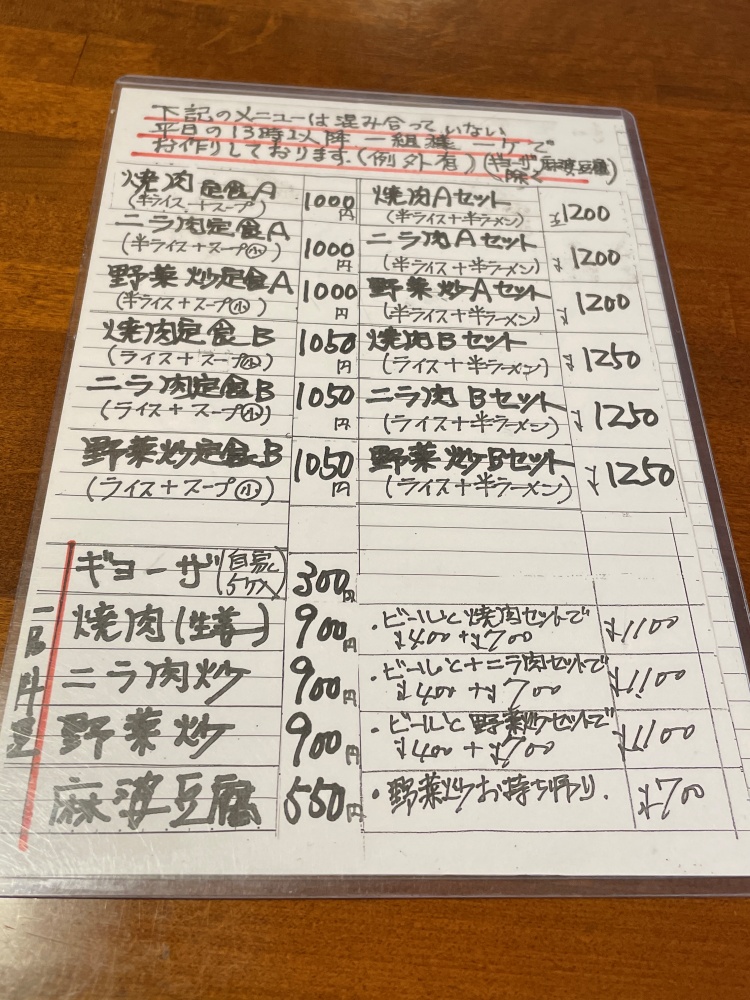 下記のメニューは混み合っていない
平日の13時以降 一組様 一ケで
お作りしております。(例外有)(ギョーザ 麻婆豆腐 除く)
焼肉定食A 1000円 焼肉Aセット ¥1200
(半ライス+スープ) (半ライス+半ラーメン)
ニラ肉定食A 1000円 ニラ肉Aセット ¥1200
(半ライス+スープ小) (半ライス+半ラーメン)
野菜炒定食A 1000円 野菜炒Aセット ¥1200
(半ライス+スープ小) (半ライス+半ラーメン)
焼肉定食B 1050円 焼肉Bセット ¥1250
(ライス+スープ小) (ライス+半ラーメン)
ニラ肉定食B 1050円 ニラ肉Bセット ¥1250
(ライス+スープ小) (ライス+半ラーメン)
野菜炒定食B 1050円 野菜炒Bセット ¥1250
(ライス+スープ小) (ライス+半ラーメン)
一品料理
ギョーザ(自家 5ケ入) 300円
焼肉(生姜) 900円 ・ビールと焼肉セットで ¥1100
¥400+¥700
ニラ肉炒 900円 ・ビールと+ニラ肉セットで ¥1100
¥400+¥700
野菜炒 900円 ・ビールと野菜炒セットで ¥1100
¥400+¥700
麻婆豆腐 550円 ・野菜炒お持ち帰り. ¥700